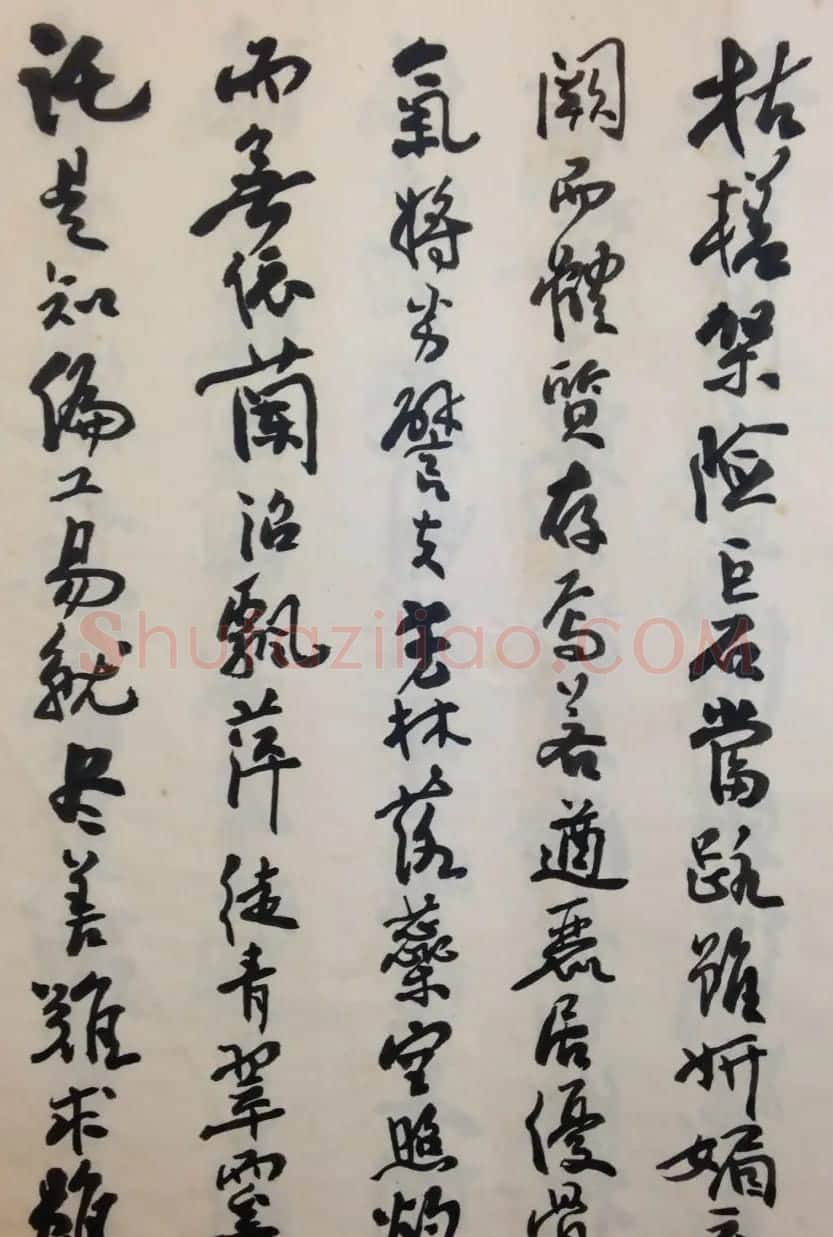 枯槎架險巨石當路雖妍媚
闕而體質存焉若遒麗居優骨
氣將劣譬夫芳林落蘂空照灼
而無依蘭沼飄萍徒青翠而奚
託是知偏工易就尽善難求雖
Shufaziliao.COM